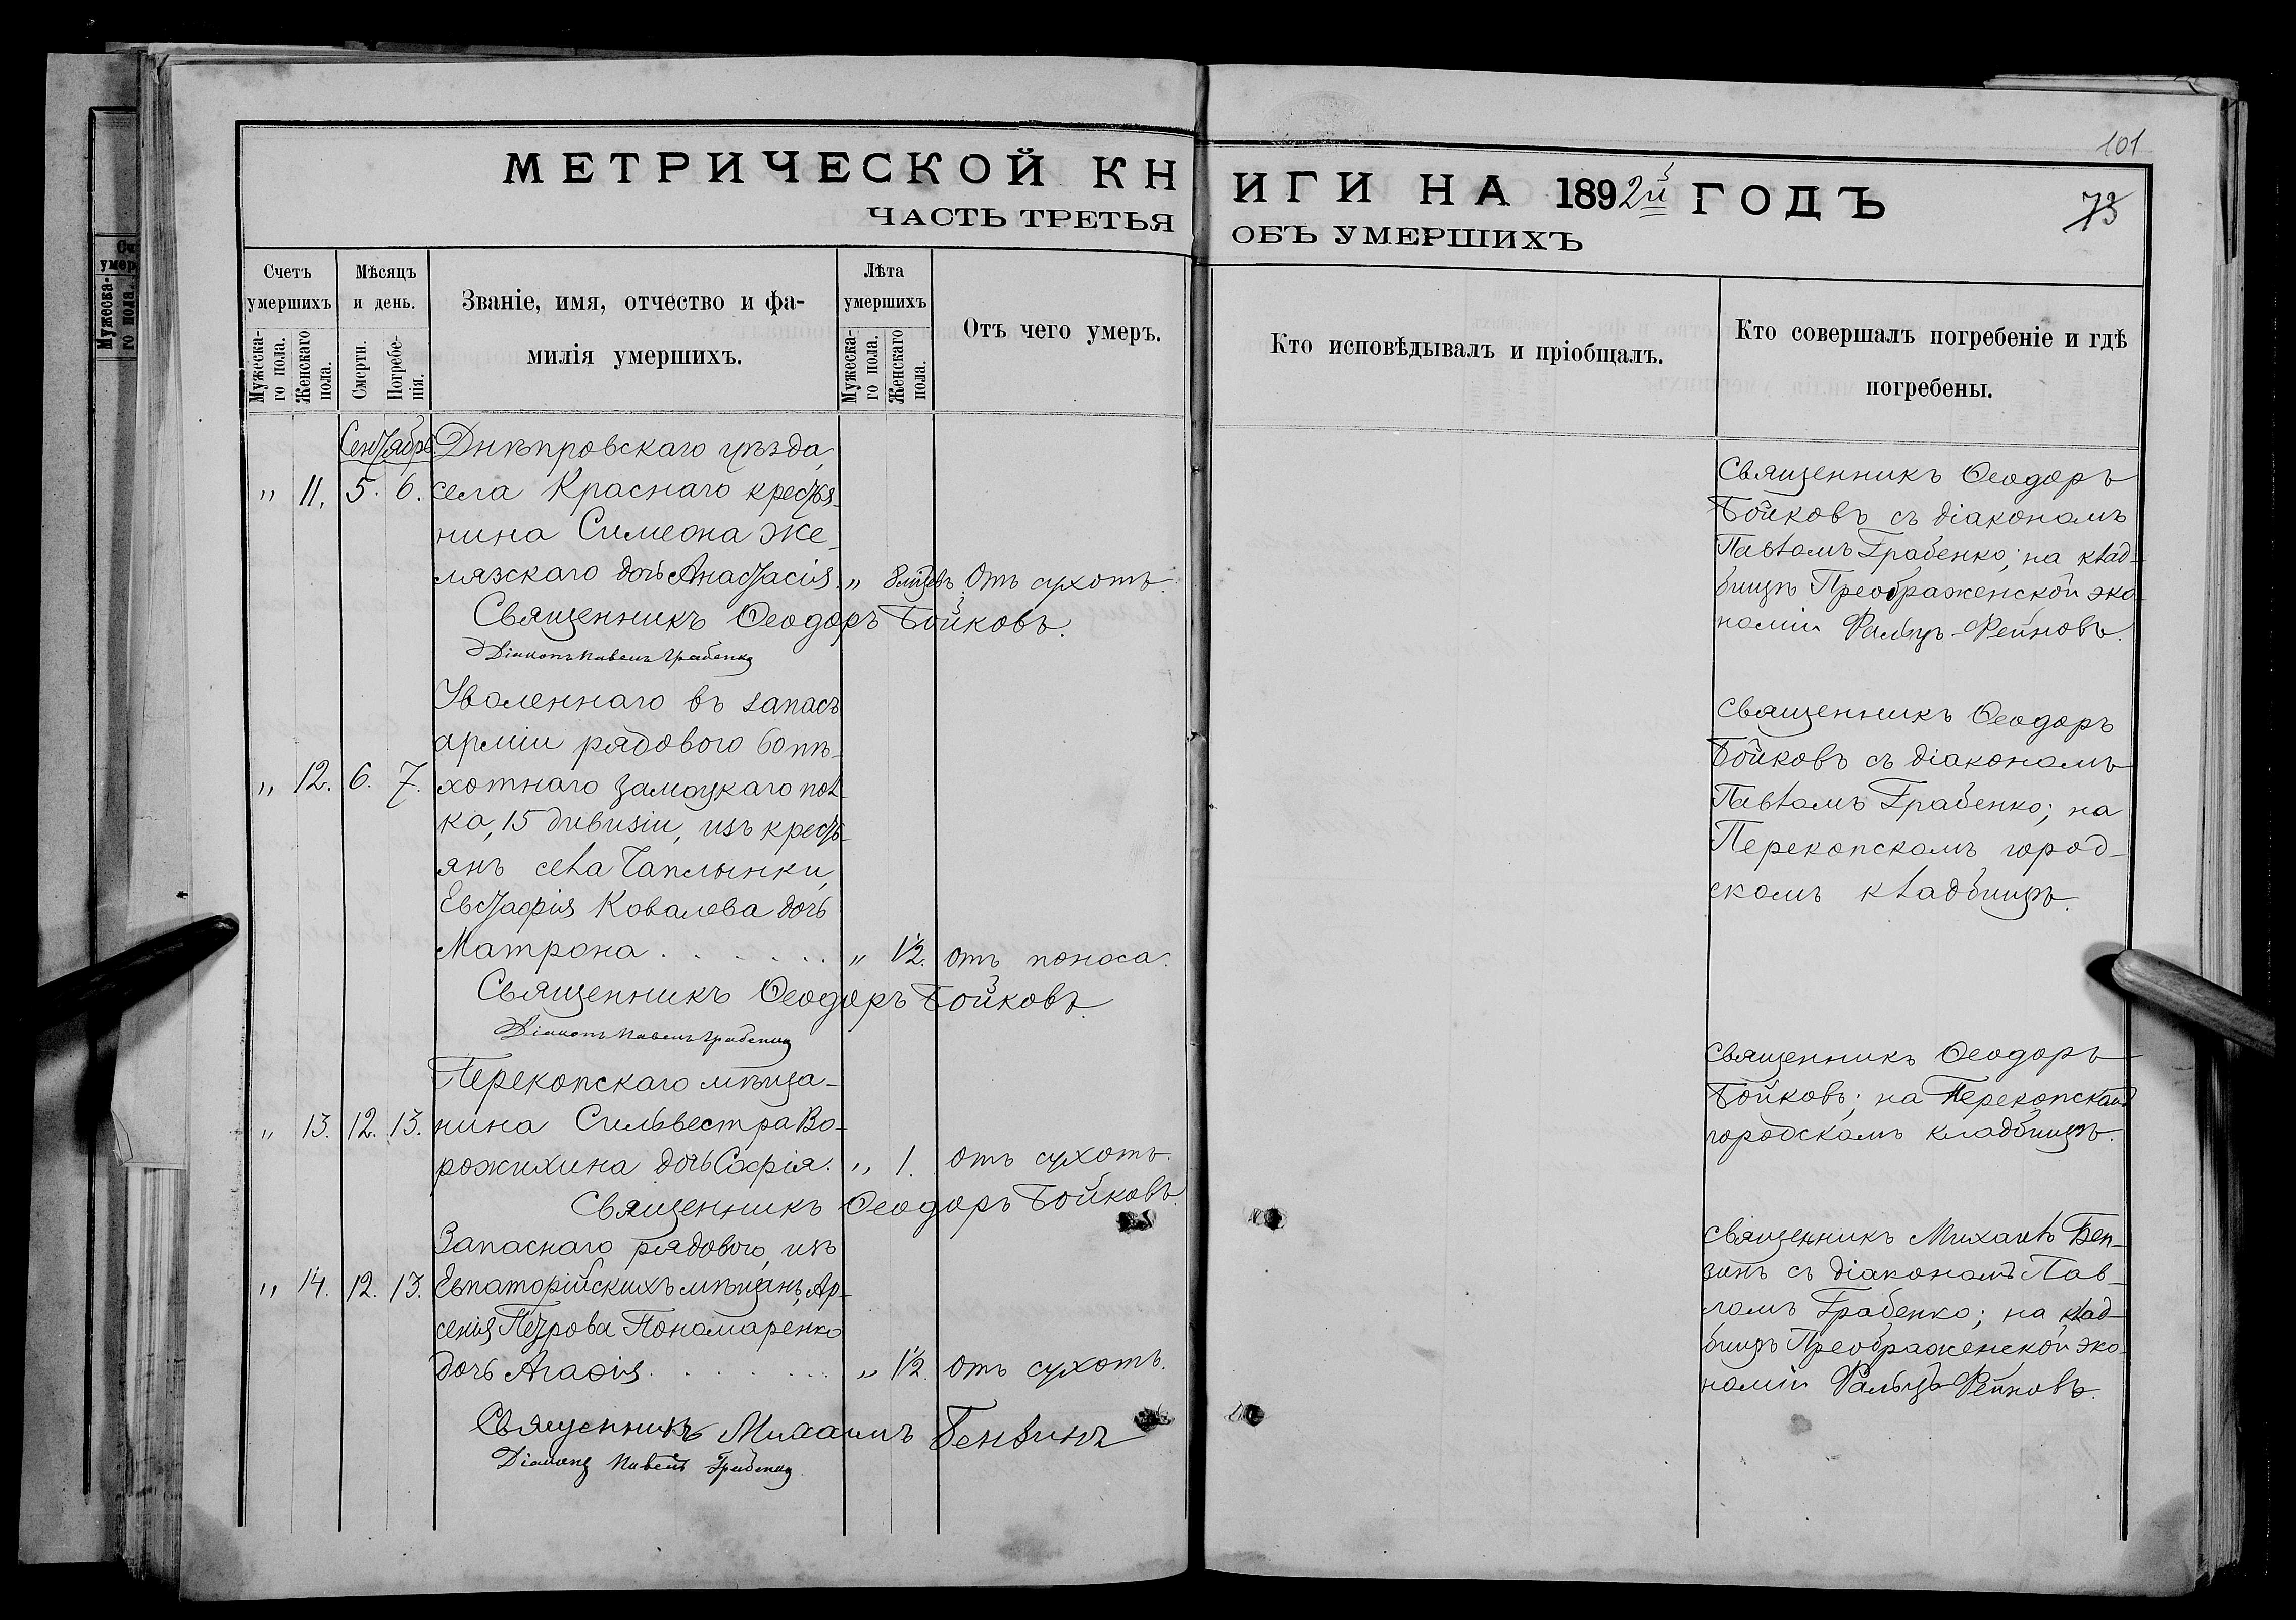 101
МЕТРИЧЕСКОЙ КНИГИ НА 1892й ГОДЪ
73
ЧАСТЬ ТРЕТЬЯ ОБЪ УМЕРШИХЪ
Счетъ умершихъ
Мужеска-го пола.
Женскаго пола.
Мѣсяцъ и день.
Смерти.
Погребе-нія.
Званіе, имя, отчество и фа-
милія умершихъ.
Лѣта умершихъ
Мужеска-го пола.
Женскаго пола.
Отъ чего умеръ.
Кто исповѣдывалъ и пріобщалъ.
Кто совершалъ погребеніе и гдѣ
погребены.
Сентябрь.
Днѣпровскаго уѣзда,
" 11. 5. 6. села Краснаго крестья-
нина Симеона Же-
лязскаго дочь Анастасія. " 8 мѣсцевъ. Отъ сухотъ.
Священникъ Ѳеодоръ Бойковъ.
Діаконъ Павелъ Грабенко
Священникъ Ѳеодоръ
Бойковъ съ діакономъ
Павломъ Грабенко; на клад-
бищѣ Преображенской эко-
номіи Фальцъ-Фейновъ.
Уволеннаго въ запасъ
арміи рядового 60 пѣ-
" 12. 6. 7. хотнаго Замоцкаго пол-
ка, 15 дивизіи, изъ кресть-
янъ села Чаплынки,
Евстафія Ковалева дочь
Матрона . . . . . . " 1/2. отъ поноса.
Священникъ Ѳеодоръ Бойковъ.
Діаконъ Павелъ Грабенко
Священникъ Ѳеодоръ
Бойковъ съ діакономъ
Павломъ Грабенко; на
Перекопскомъ город-
скомъ кладбищѣ.
Перекопскаго мѣща-
" 13. 12. 13. нина Сильвестра Во-
рожихина дочь Софія. " 1. отъ сухотъ.
Священникъ Ѳеодоръ Бойковъ.
Священникъ Ѳеодоръ
Бойковъ; на Перекопскомъ
городскомъ кладбищѣ.
Запаснаго рядового, изъ
" 14. 12. 13. Евпаторійскихъ мѣщанъ, Ар-
сенія Петрова Пономаренко
дочь Агаѳія. . . . . . . " 1/2. отъ сухотъ.
Священникъ Михаилъ Бензинъ
Діаконъ Павелъ Грабенко.
Священникъ Михаилъ Бен-
зинъ съ діакономъ Пав-
ломъ Грабенко; на клад-
бищѣ Преображенской эко-
номіи Фальцъ-Фейновъ.
Мужеска-го пола.